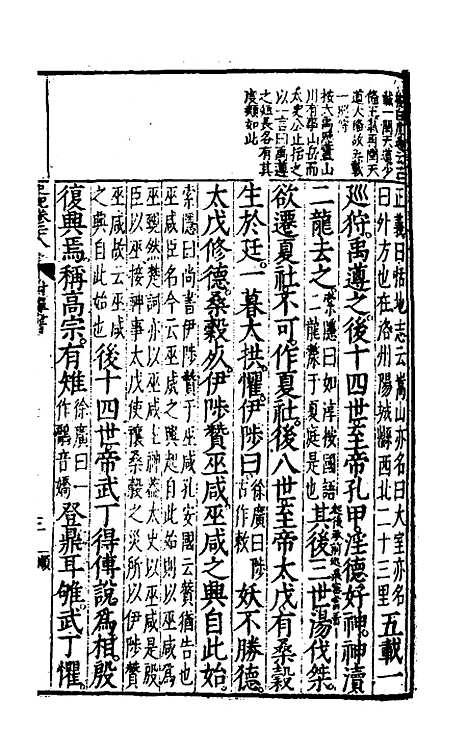 載一閏天道少
備五載再閏天
道大備故五載
一廵狩
按大禹歷畫山
川有衆山岳而
太史公止指之
以一言曰禹遵
之延長各有其
度類如此
正義曰括地志云嵩山亦名曰太室亦名
曰外方也在洛州陽城縣西北二十三里
五載一
廵狩禹遵之後十四世至帝孔甲淫德好神神瀆
二龍去之
索隱曰如淳按國語
二龍漦于夏庭是也
其後三世湯伐桀
欲遷夏社不可作夏社後八世至帝太戊有桑穀
生於廷一暮大拱懼伊陟曰
徐廣曰陟
古作敕
妖不勝德
太戊修德桑穀死伊陟贊巫咸巫咸之興自此始
索隱曰尚書伊陟贊于巫咸孔安國云贊猶告也
巫咸臣名今云巫咸之興起自此始則以巫咸爲
巫覡然楚詞亦以巫咸主神蓋太史以巫咸是殷
臣以巫接神事太戊使禳桑穀之災所以伊陟贊
巫咸故云巫咸
之興自此始也
後十四世帝武丁得傅說爲相殷
復興焉稱高宗有雉
徐廣曰一
作鷮音嬌
登鼎耳雊武丁懼
三
順